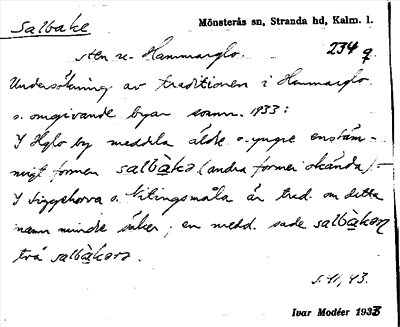 Salbake
Mönsterås sn, Stranda hd, Kalm. l.
sten u. Hammarglo. 234 q.
Undersökning av traditionen i Hammarglo
o. omgivande byar somm. 1933:
I Hglo by meddela äldre o. yngre enstäm-
migt formen salbàkə (andra former okända). –
I Siggehorva o. Nötingsmåla är trad. om detta
namn mindre säker; en medd. sade salbàkən
två salbàkərə.
s. 41, 43.
Ivar Modéer 1933